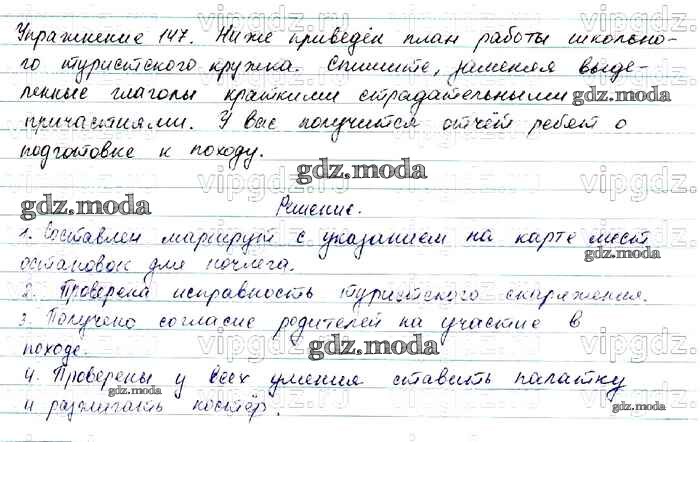 Упражнение 147. Ниже приведён план работы школьно-
го туристского кружка. Спишите, заменяя выде-
ленные глаголы краткими страдательными
причастиями. У вас получится отчёт ребят о
подготовке к походу.
Решение.
1. Составлен маршрут с указанием на карте мест
остановок для ночлега.
2. Проверена исправность туристского снаряжения.
3. Получено согласие родителей на участие в
походе.
4. Проверены у всех умения ставить палатку
и разжигать костёр.
gdz.moda
gdz.moda
gdz.moda
gdz.moda
gdz.moda
gdz.moda
gdz.moda
vipgdz.ru